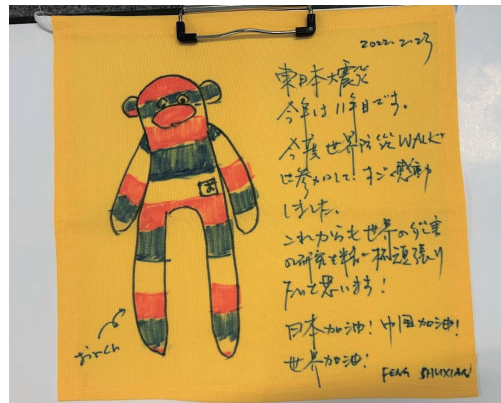 2022.2.23
東日本大震災
今年は11年目です。
今度世界防災WALK
に参加して、すごく感動
しました。
これからも世界の災害
の研究を精一杯頑張り
たいと思います!
日本加油!中国加油!
世界加油!
FENG SHUXIAN
お